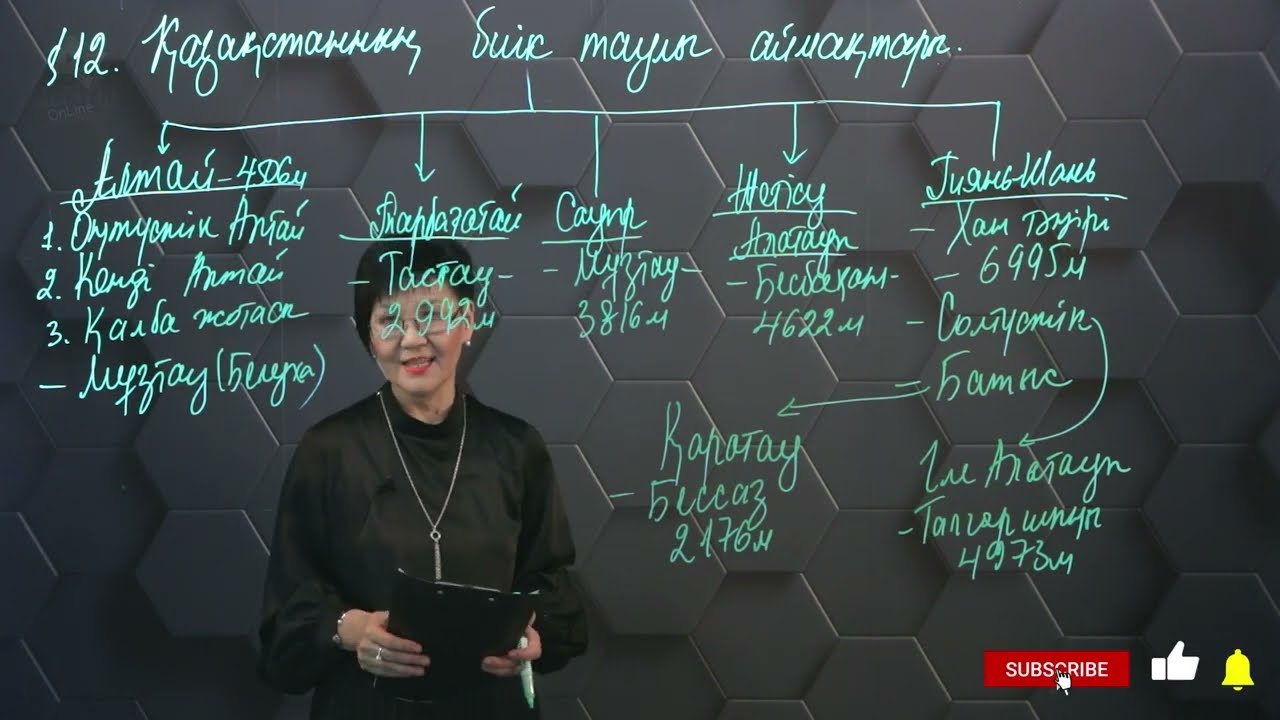 §12. Қазақстанның биік таулы аймақтары.
OnLine
Алтай - 4506м
1. Оңтүстік Алтай
2. Кенді Алтай
3. Қалба жотасы
- Мұзтау (Белуха)
Тарбағатай
- Тастау -
2992м
Сауыр
- Мұзтау -
3816м
Жетісу
Алатауы
- Бесбақан -
4622м
Тянь-Шань
- Хан тәңірі
- 6995м
- Солтүстік
- Батыс
Қаратау
- Бессаз
2176м
Іле Алатауы
- Талғар шыңы
4973м
SUBSCRIBE